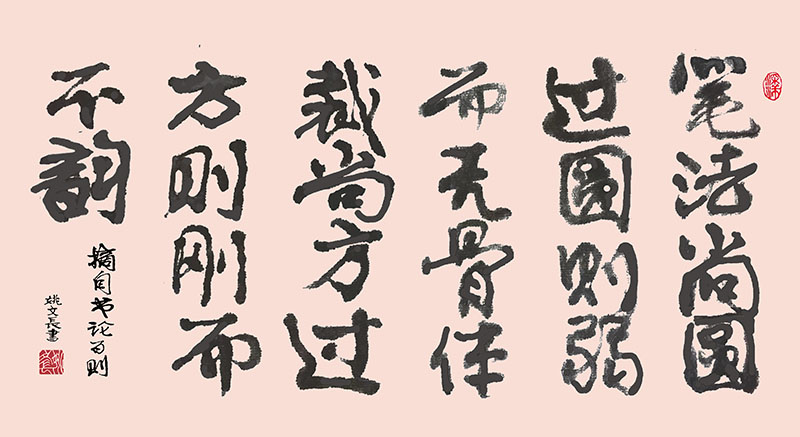 笔法尚圆
过圆则弱
而无骨体
裁尚方过
方则刚而
不韵
摘自书论百则
姚文长書